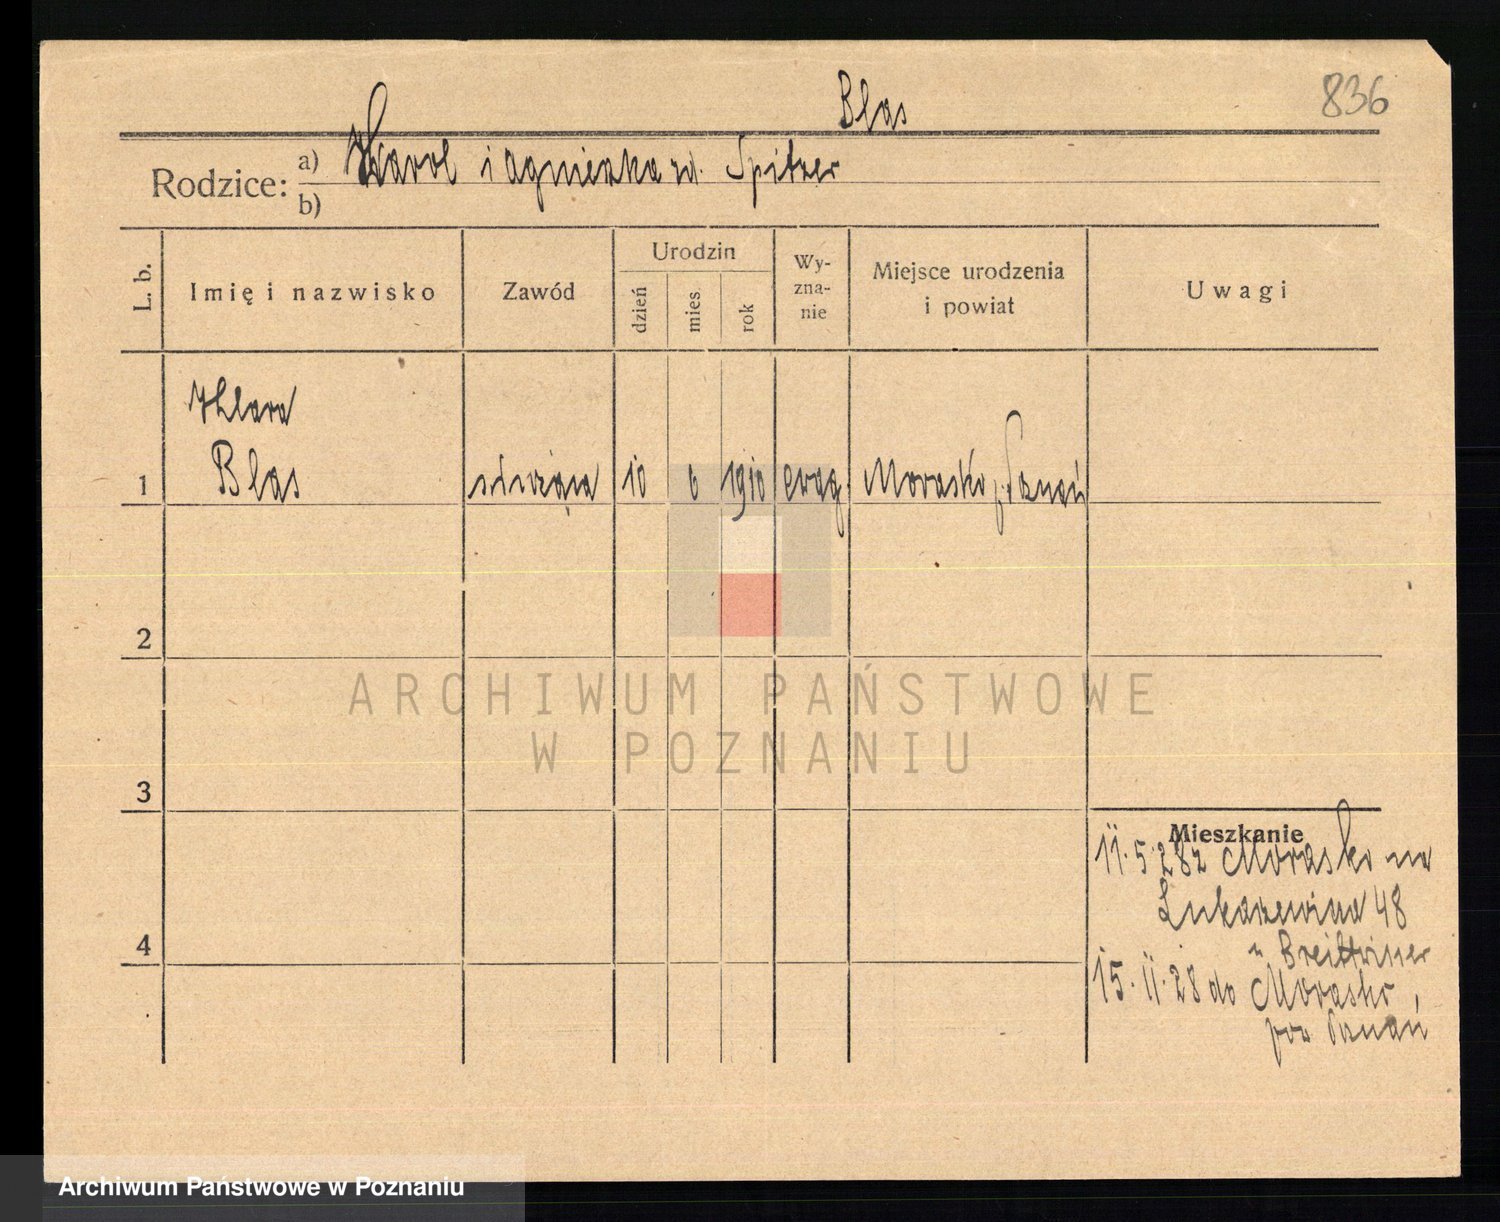 836
Blas
Rodzice: a) Karol i Agnieszka zd. Spitzer
b)
L. b.
Imię i nazwisko
Zawód
Urodzin
dzień
mies
rok
Wy-
zna-
nie
Miejsce urodzenia
i powiat
Uwagi
Klara
1 Blas służąca 10 6 1910 ewag. Morasko p. Poznań
2
3
4
Mieszkanie
11.5.28 z Morasko na
Łukaszewicza 48
15.11.28 do Morasko,
pow Poznań
ARCHIWUM PAŃSTWOWE
W POZNANIU
Archiwum Państwowe w Poznaniu